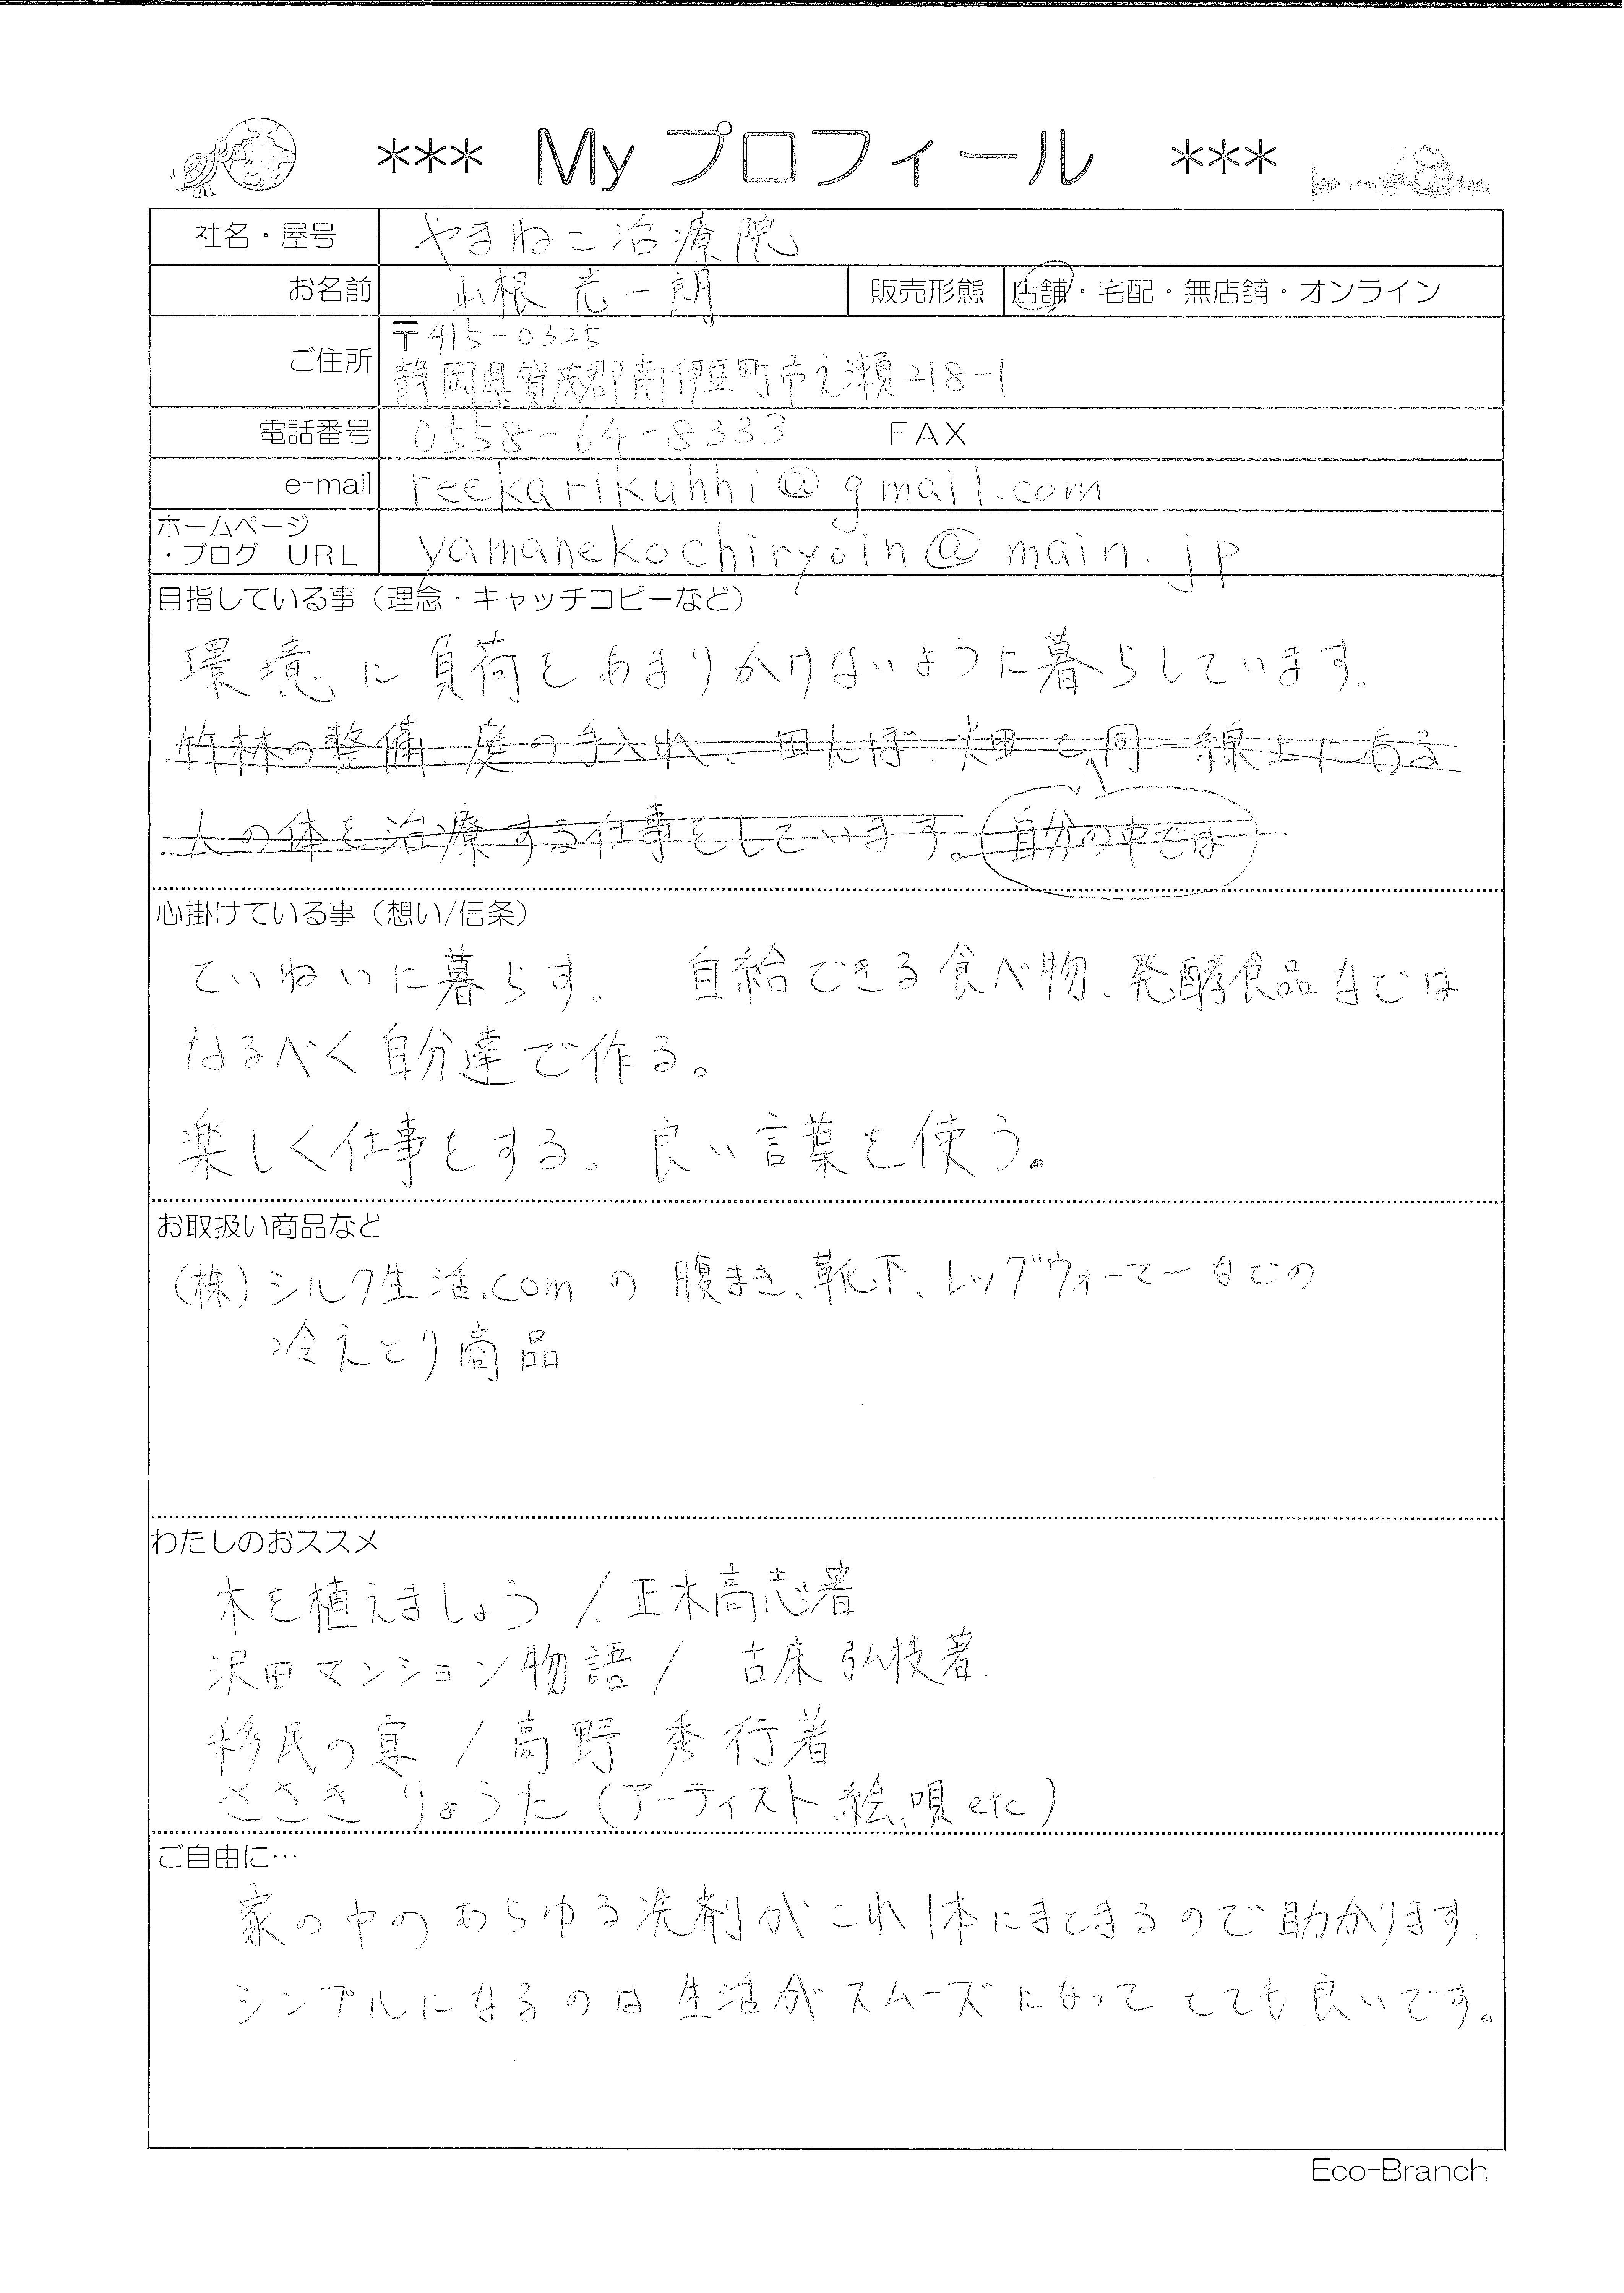 *** My プロフィール ***
社名・屋号 やまねこ治療院
お名前 山根 光一朗 販売形態 店舗・宅配・無店舗・オンライン
〒415-0325
ご住所 静岡県賀茂郡南伊豆町市之瀬218-1
電話番号 0558-64-8333 FAX
e-mail reekarikuhhi@gmail.com
ホームページ
・ブログ URL yamanekochiryoin@main.jp
目指している事（理念・キャッチコピーなど）
環境に負荷をあまりかけないように暮らしています。
竹林の整備、庭の手入れ、田んぼ、畑と同一線上にある
人の体を治療する仕事をしています。自分の中では
心掛けている事（想い/信条）
ていねいに暮らす。 自給できる食べ物、発酵食品などは
なるべく自分達で作る。
楽しく仕事をする。良い言葉を使う。
お取扱い商品など
(株)シルク生活.comの腹まき、靴下、レッグウォーマーなどの
冷えとり商品
わたしのおススメ
木を植えましょう / 正木高志著
沢田マンション物語 / 古床弘枝著
移民の宴 / 高野 秀行著
ささき りょうた (アーティスト 絵、唄 etc)
ご自由に…
家の中のあらゆる洗剤がこれ1本にまとまるので助かります。
シンプルになるのは生活がスムーズになってとても良いです。
Eco-Branch